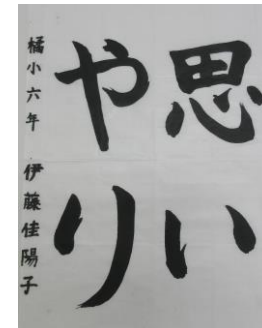 思い
やり
橘小六年 伊藤佳陽子